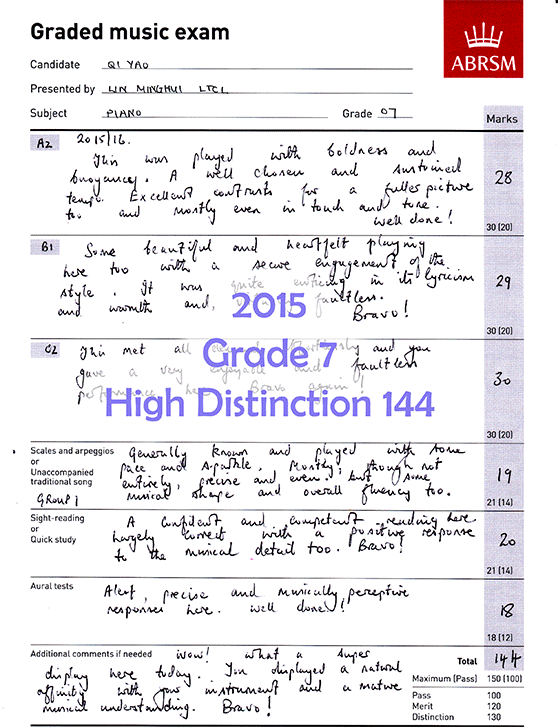 Graded music exam
ABRSM
Candidate QI YAO
Presented by LIN MINGHUI LTCL
Subject PIANO Grade 07
Marks
A2 2015/16.
This was played with boldness and
buoyancy. A well chosen and sustained
tempo. Excellent contrasts for a fuller picture
too and mostly even in touch and tone.
Well done!
28
30 (20)
B1 Some beautiful and heartfelt playing
here too with a secure engagement of the
style. It was quite enticing in its lyricism
and warmth and, faultless.
Bravo!
29
30 (20)
2015
Grade 7
High Distinction 144
C2 This met all and you
gave a very enjoyable and faultless
performance here. Bravo again!
30
30 (20)
Scales and arpeggios
or
Unaccompanied
traditional song
GROUP 1
Generally known and played with some
pace and sparkle. Mostly, though not
entirely, precise and even. but some
musical shape and overall fluency too.
19
21 (14)
Sight-reading
or
Quick study
A confident and competent reading here
largely correct with a positive response
to the musical detail too. Bravo!
20
21 (14)
Aural tests
Alert, precise and musically perceptive
responses here. Well done!
18
18 (12)
Additional comments if needed Wow! What a super
display here today. You displayed a natural
affinity with your instrument and a mature
musical understanding. Bravo!
Total 144
Maximum (Pass) 150 (100)
Pass 100
Merit 120
Distinction 130